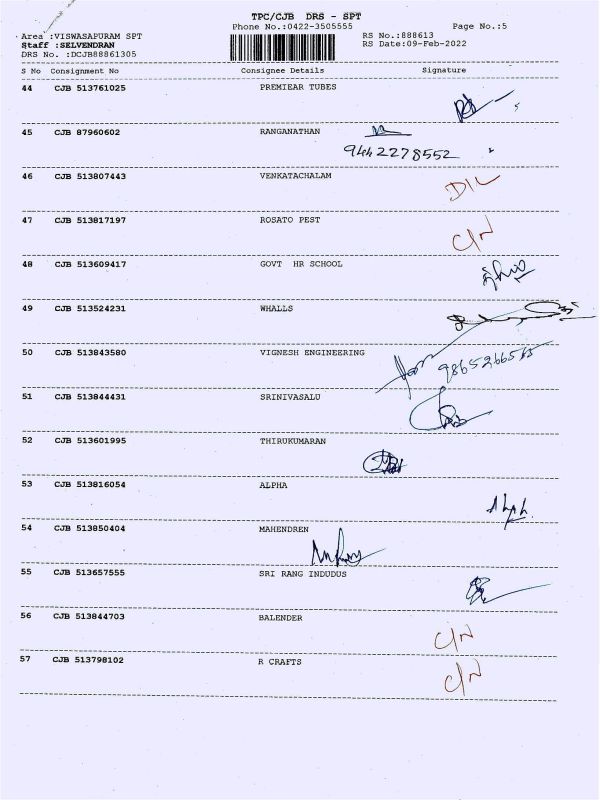 TPC/CJB DRS - SPT
Phone No.:0422-3505555 Page No.:5
Area :VISWASAPURAM SPT RS No.:888613
Staff :SELVENDRAN RS Date:09-Feb-2022
DRS No. :DCJB88861305
S No Consignment No Consignee Details Signature
44 CJB 513761025 PREMIEAR TUBES
45 CJB 87960602 RANGANATHAN
9442278552
46 CJB 513807443 VENKATACHALAM D/L
47 CJB 513817197 ROSATO PEST C/N
48 CJB 513609417 GOVT HR SCHOOL
49 CJB 513524231 WHALLS
50 CJB 513843580 VIGNESH ENGINEERING
51 CJB 513844431 SRINIVASALU
52 CJB 513601995 THIRUKUMARAN
53 CJB 513816054 ALPHA
54 CJB 513850404 MAHENDREN
55 CJB 513657555 SRI RANG INDUDUS
56 CJB 513844703 BALENDER C/N
57 CJB 513798102 R CRAFTS C/N